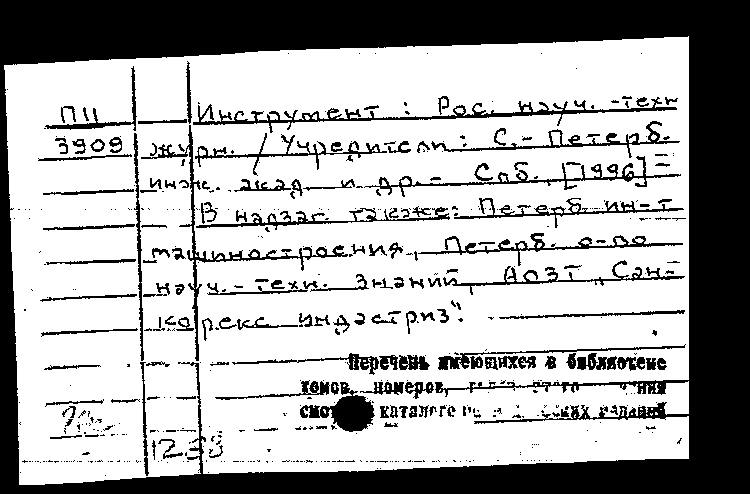 П11 Инструмент : Рос. науч.-техн
3909 журн. / Учредители : С.-Петерб.
инж. акад. и др. - Спб., [1996] -
В надзаг. также: Петерб. ин-т
машиностроения, Петерб. о-во
науч.-техн. знаний, АОЗТ „Сан-
корекс индастриз".
Перечень имеющихся в библиотеке
томов, номеров,
каталоге